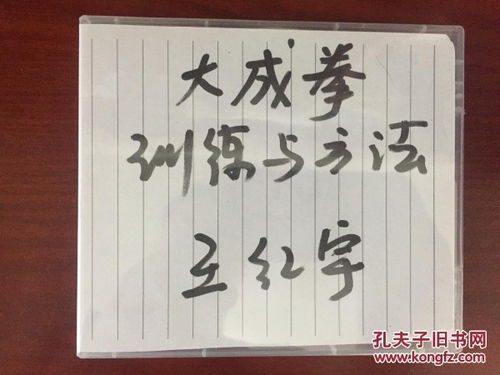 大成拳
训练与方法
王红宇
孔夫子旧书网
www.kongfz.com